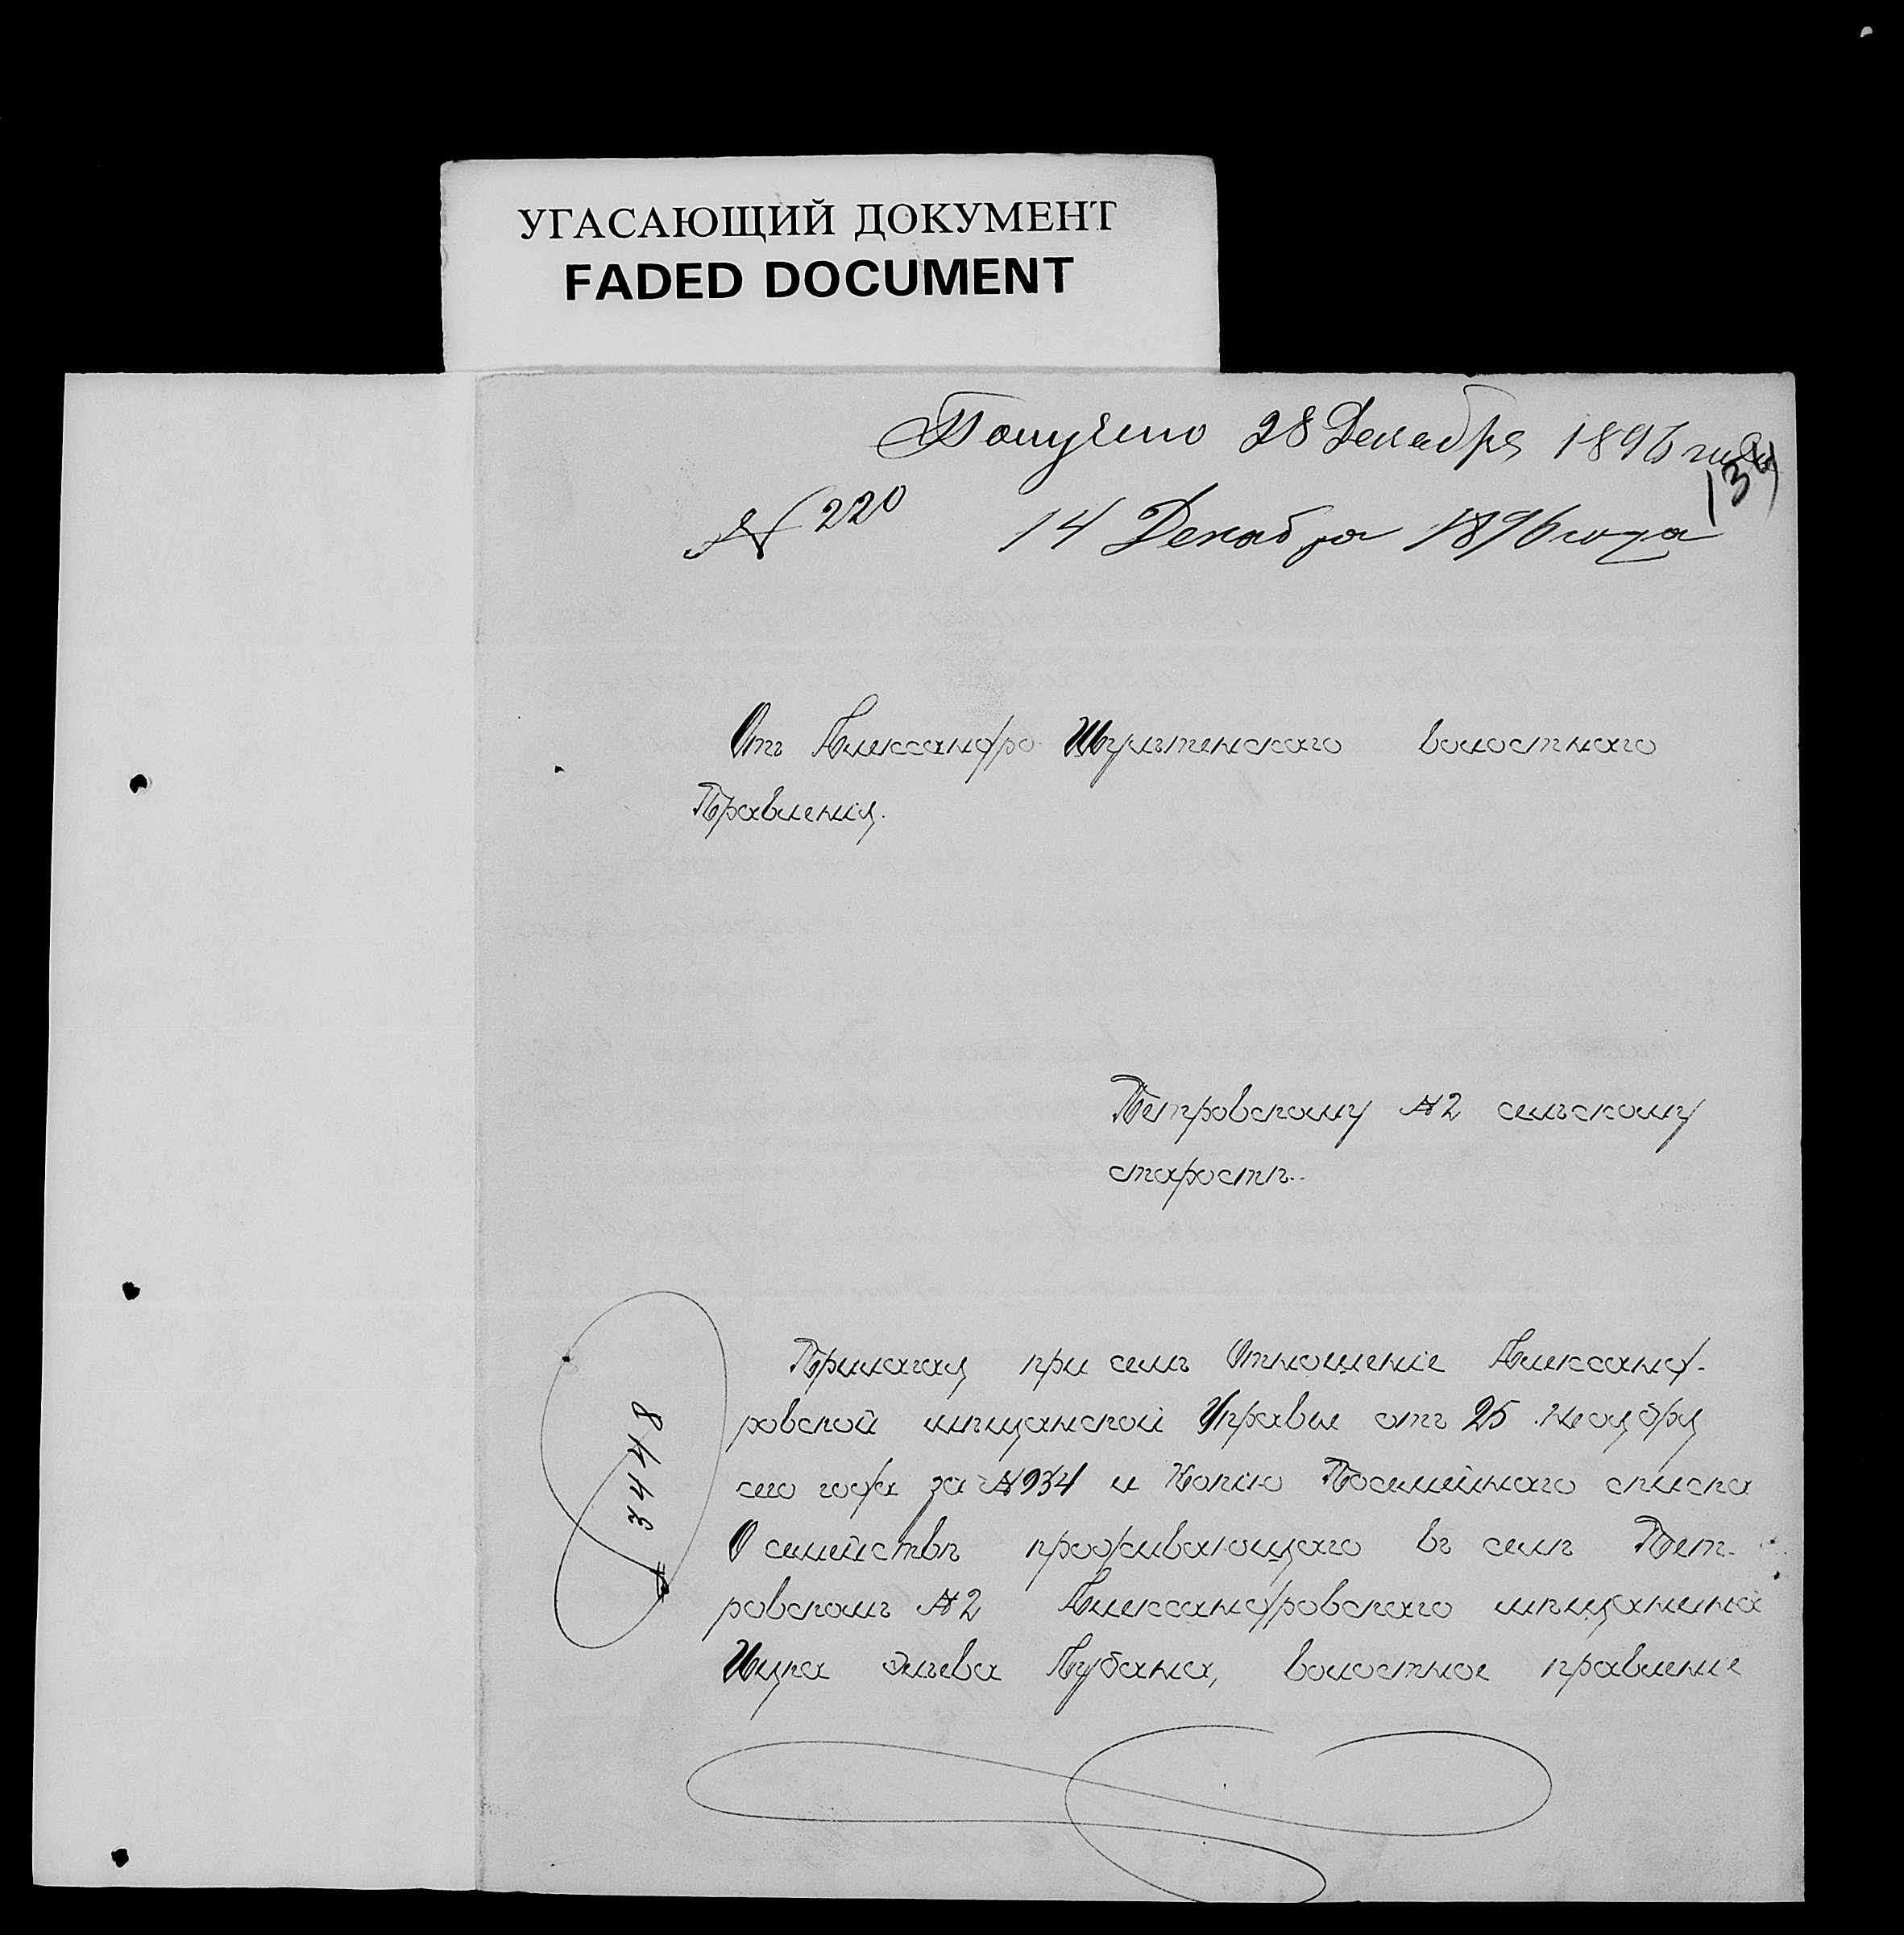 УГАСАЮЩИЙ ДОКУМЕНТ
FADED DOCUMENT
Получено 28 Декабря 1896 года
134
№ 220 14 Декабря 1896 года
Отъ Александро Шультенскаго волостнаго
Правленія.
Петровскому №2 сельскому
старостѣ.
Прилагая при семъ Отношеніе Александ-
ровской мѣщанской Управы отъ 25 Ноября
сего года за №934 и Копію Посемейнаго списка
О семействѣ проживающаго въ селѣ Пет-
ровскомъ №2 Александровскаго мѣщанина
Ицка Лубана, волостное правленіе
№ 3448